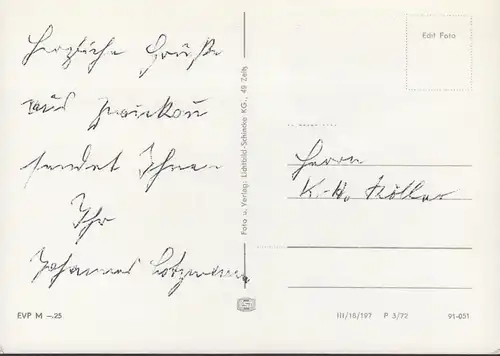 Herzliche Grüße
aus Zwickau
sendet Ihnen
Ihr
Johannes
EVP M —.25
Foto u. Verlag: Lichtbild-Schincke KG., 49 Zeitz
Edit Foto
Herrn
K.-H. Köller
III/18/197 P 3/72 91-051